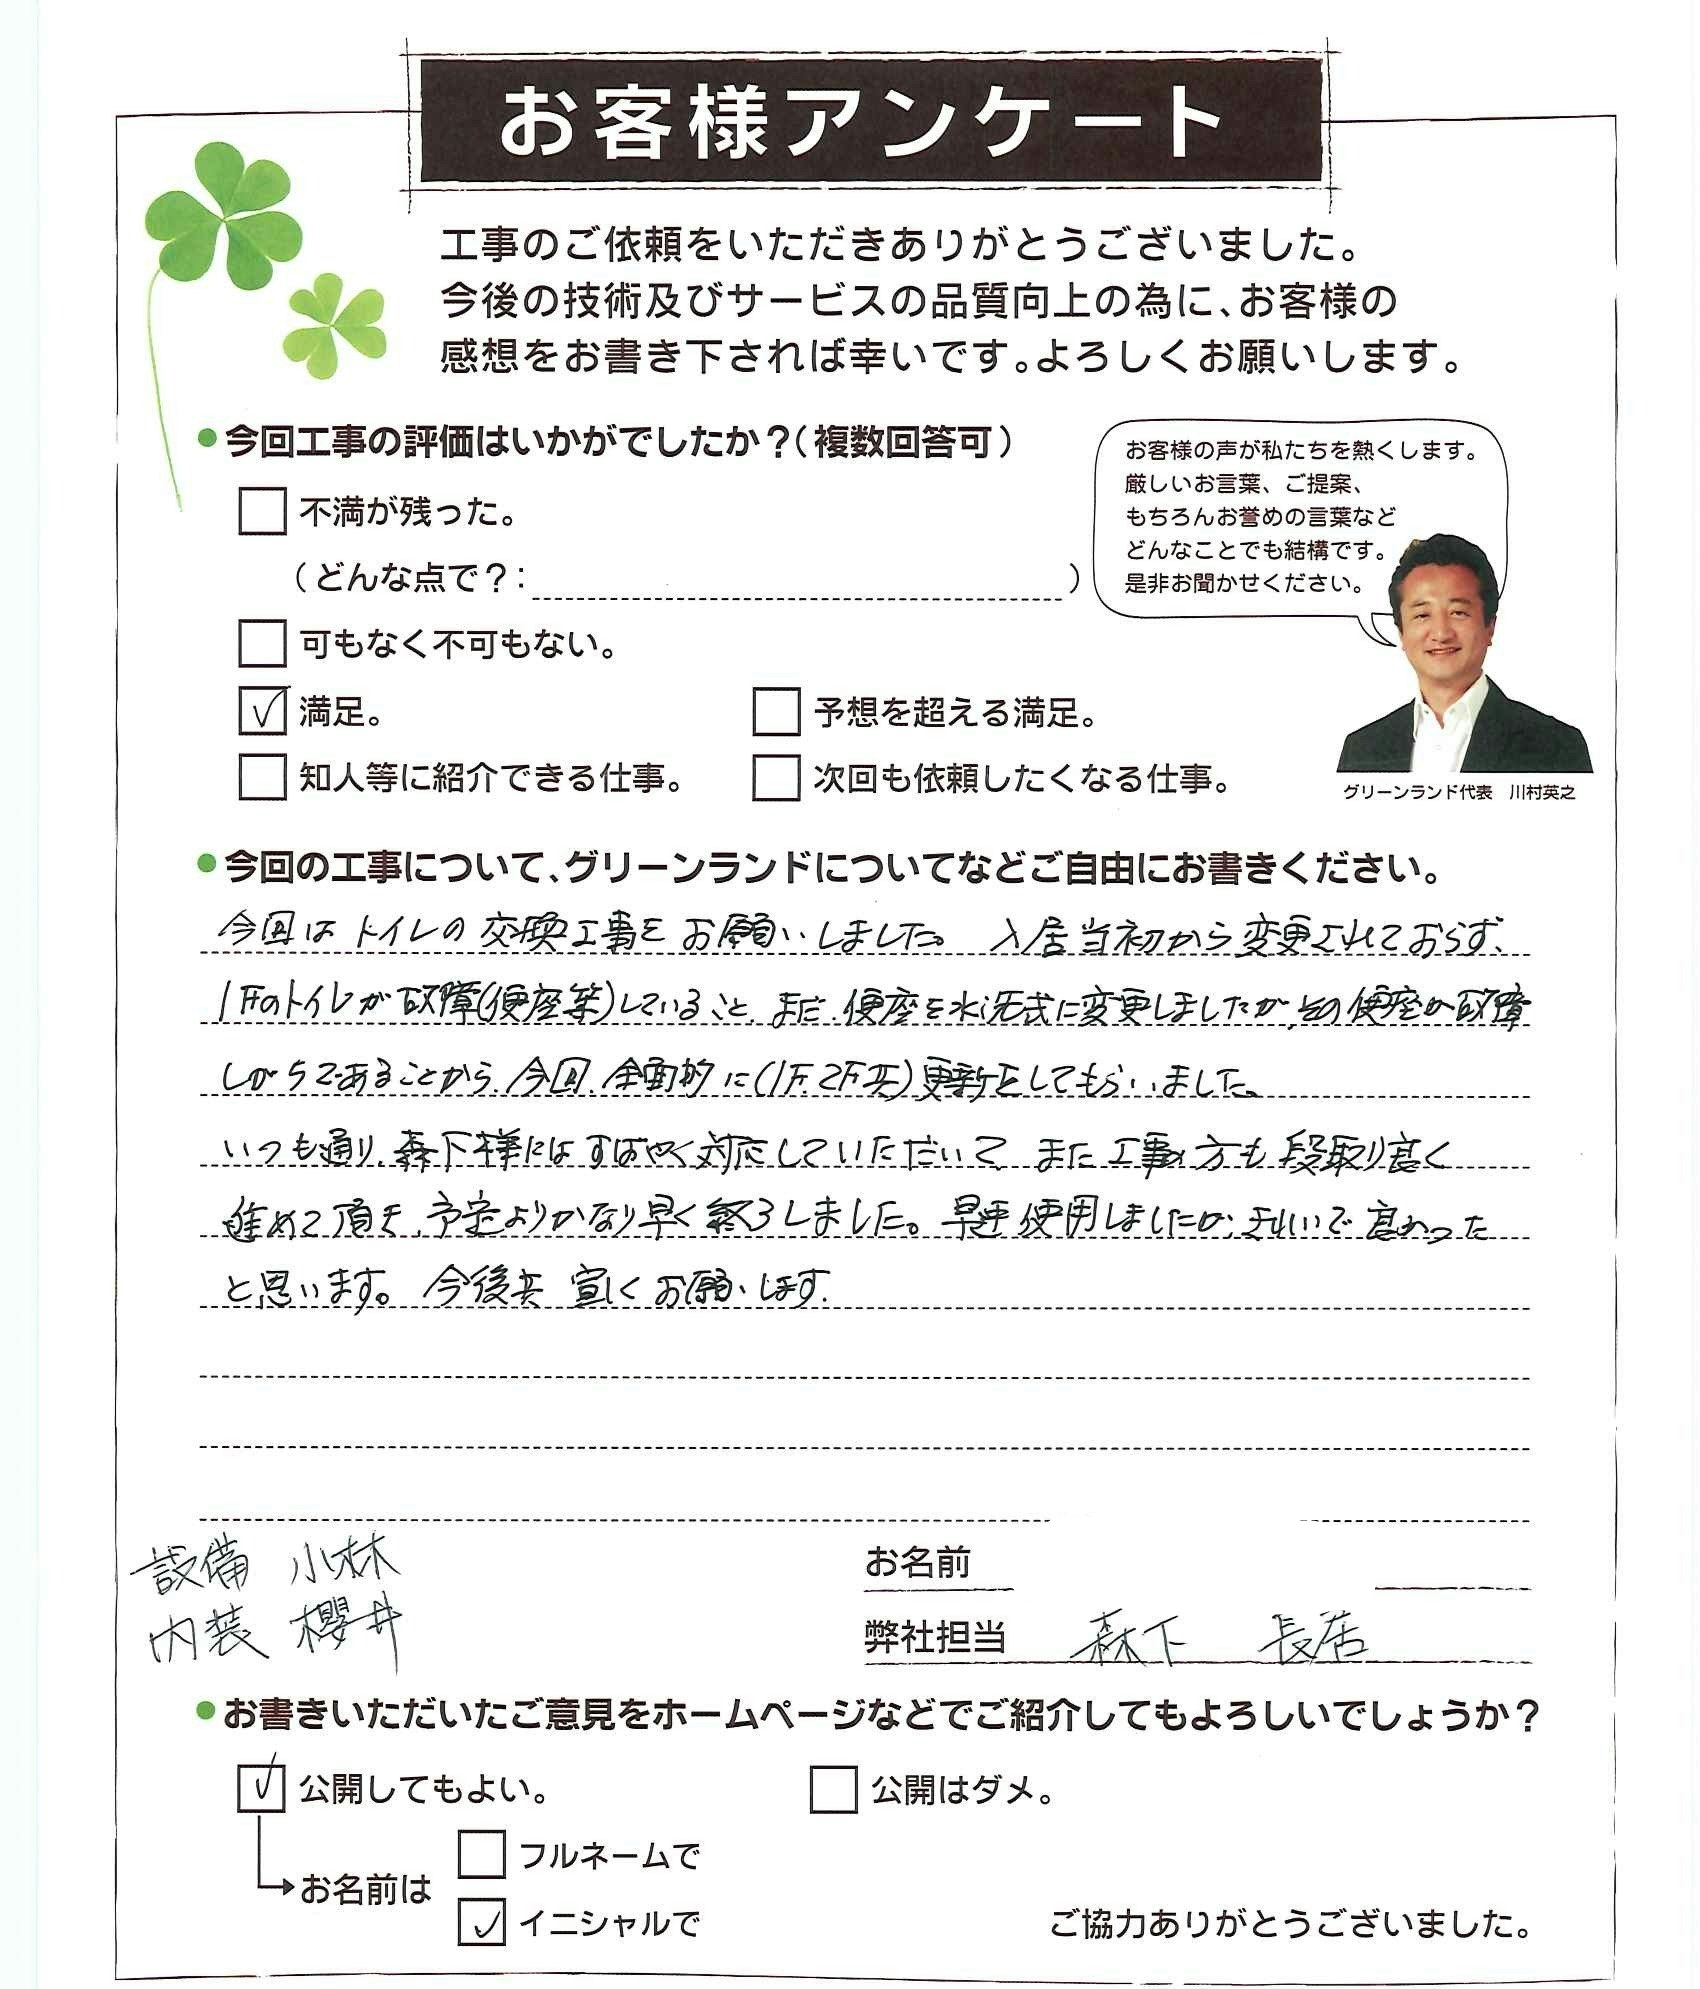 お客様アンケート
工事のご依頼をいただきありがとうございました。
今後の技術及びサービスの品質向上の為に、お客様の
感想をお書き下されば幸いです。よろしくお願いします。
今回工事の評価はいかがでしたか？（複数回答可）
不満が残った。
（どんな点で？：　）
可もなく不可もない。
満足。
予想を超える満足。
知人等に紹介できる仕事。
次回も依頼したくなる仕事。
お客様の声が私たちを熱くします。
厳しいお言葉、ご提案、
もちろんお誉めの言葉など
どんなことでも結構です。
是非お聞かせください。
グリーンランド代表　川村英之
今回の工事について、グリーンランドについてなどご自由にお書きください。
今回は トイレの 交換工事を お願いしました。 入居当初から変更されておらず、
1Fのトイレが故障(便座等)していること、また、便座を水洗式に変更しましたが、その便座が故障
しがちであることから、今回、全面的に(1F.2F共)更新をしてもらいました。
いつも通り、森下様にはすばやく対応していただいて、また工事の方も段取り良く
進めて頂き、予定よりかなり早く終了しました。早速使用しましたが、きれいで良かった
と思います。今後共 宜しくお願いします.
設備 小林
内装 櫻井
お名前
弊社担当 森下 長居
お書きいただいたご意見をホームページなどでご紹介してもよろしいでしょうか？
公開してもよい。
公開はダメ。
お名前は
フルネームで
イニシャルで
ご協力ありがとうございました。